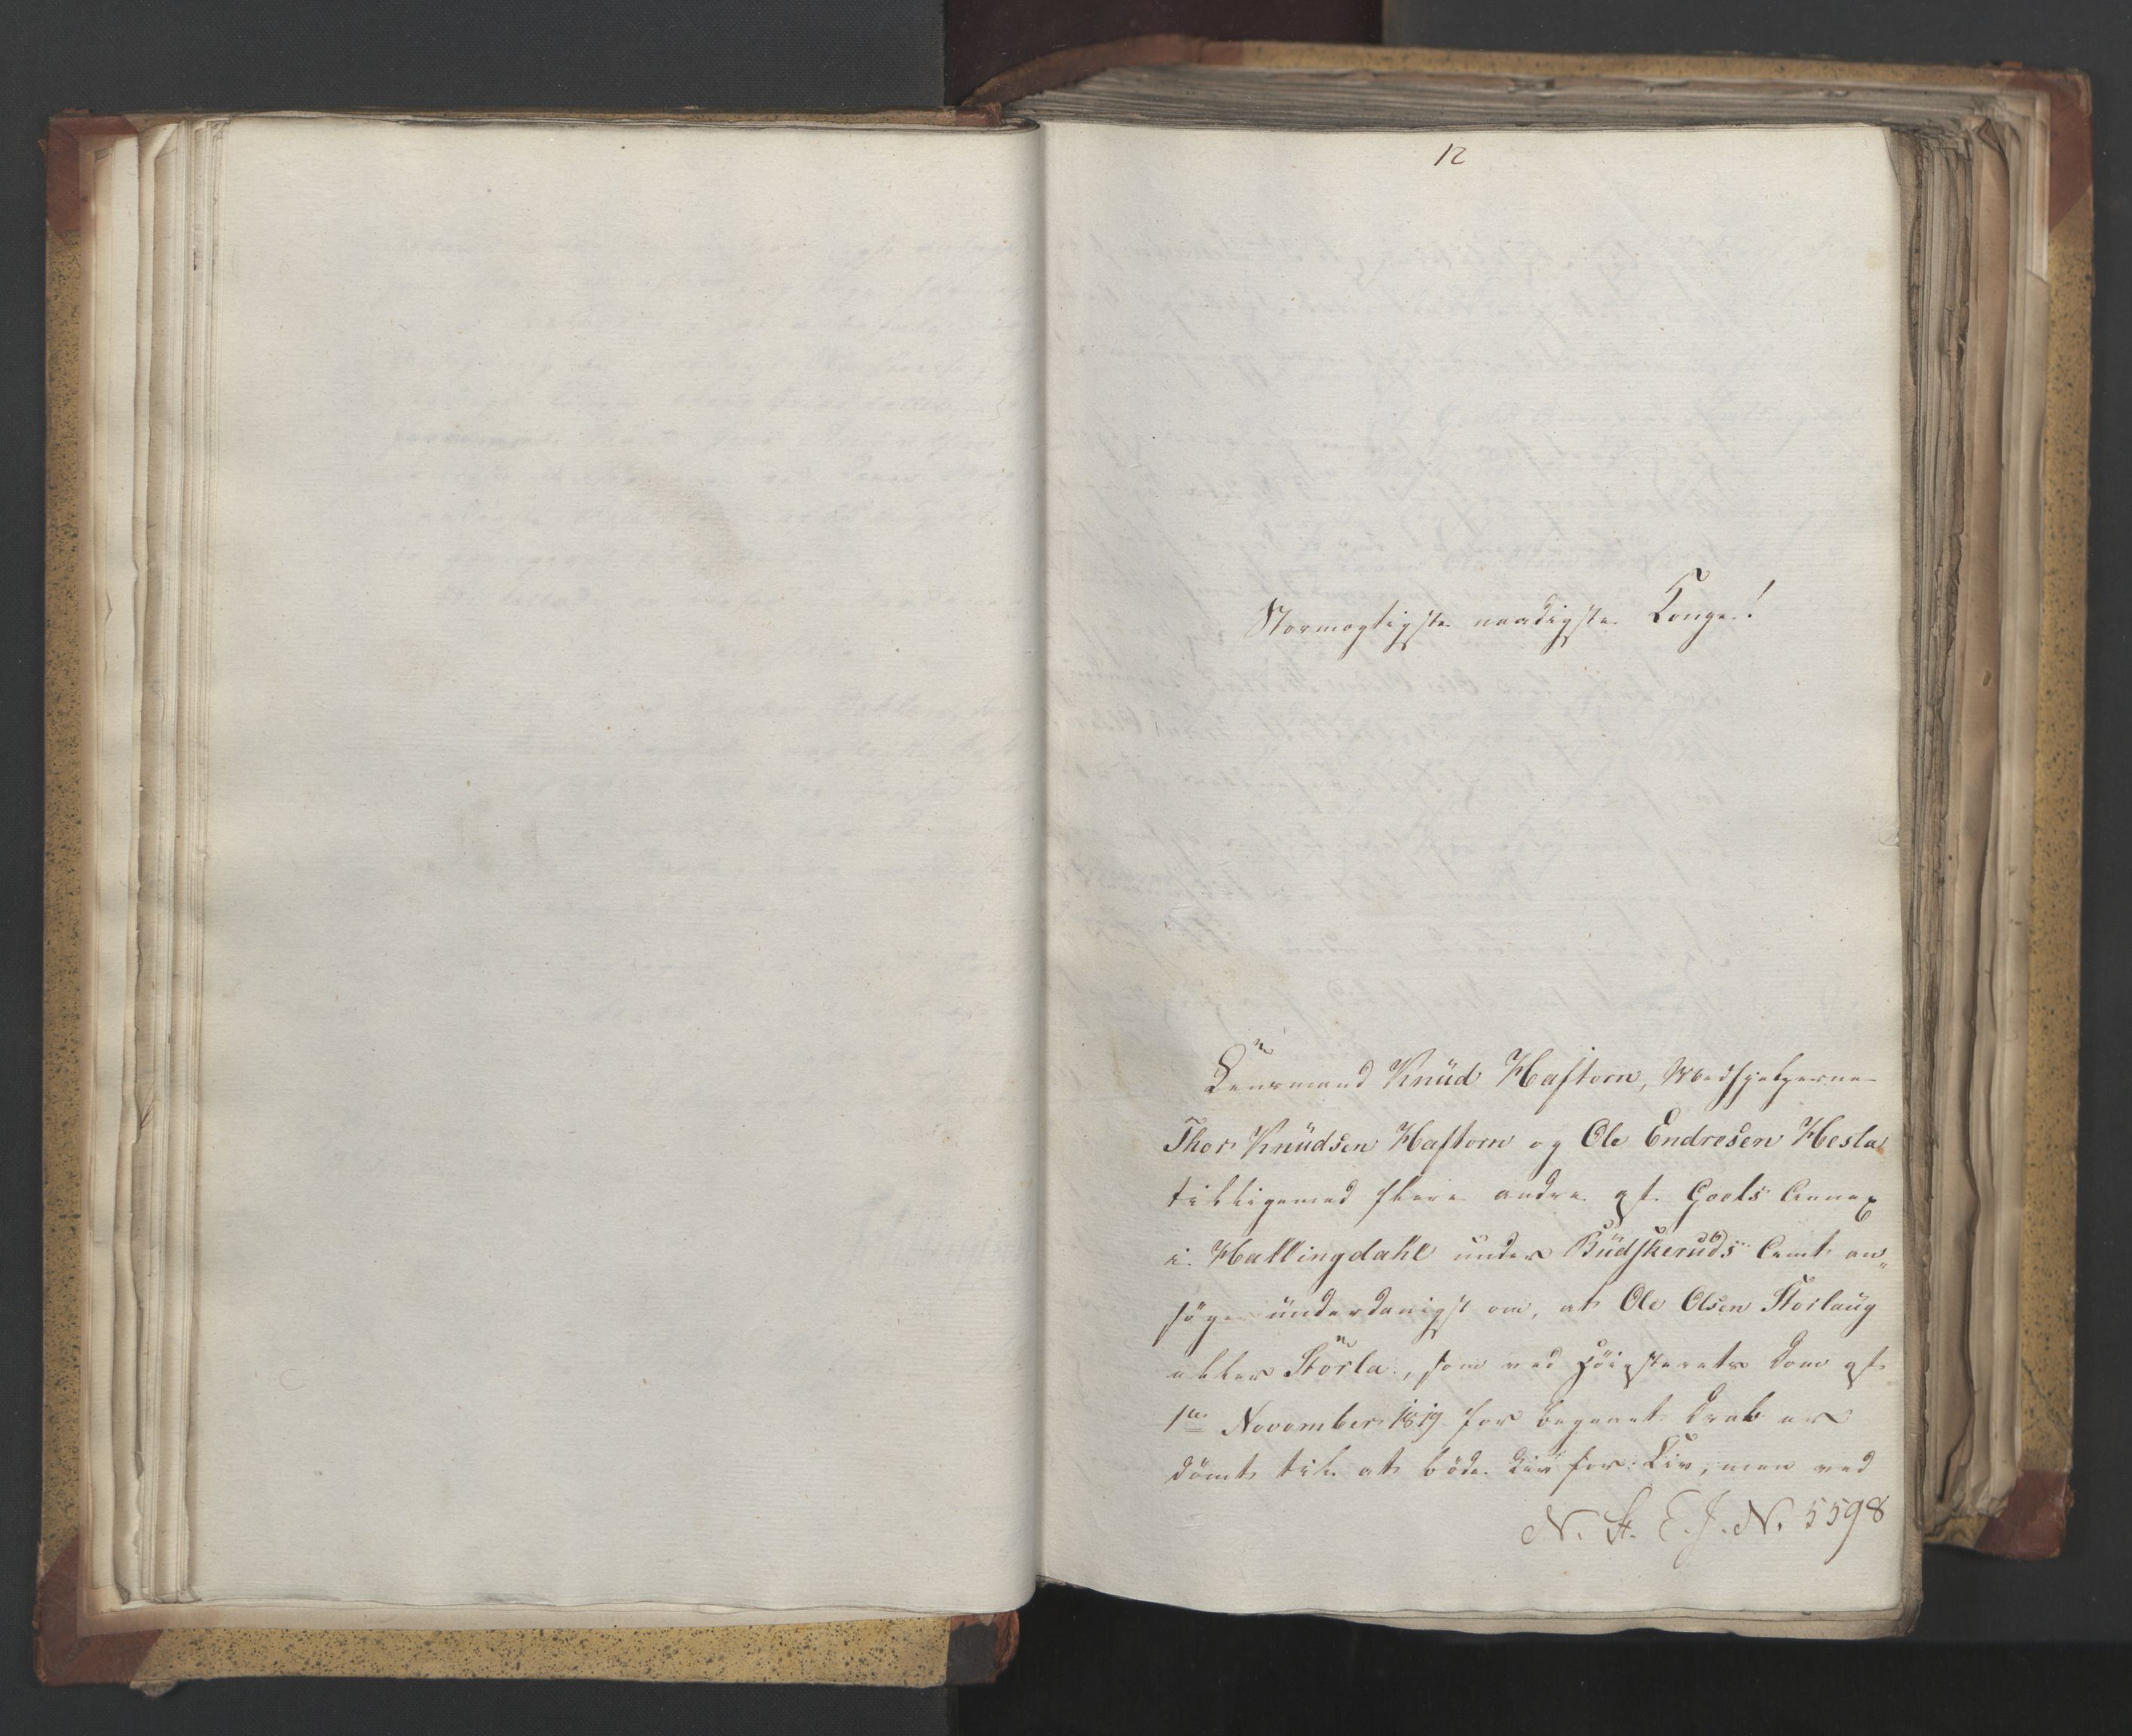 12
Stormægtigste naadigste Konge!
Lensmand Knüd Haftorn, Medhjelperne
Thor Knüdsen Haftorn og Ole Endresen Hesla
tilligemed flere andre af Goels Annex
i Hallingdahl under Büdskerüds Amt an„
søger ünderdanigst om, at Ole Olsen Storlaüg
eller Störla, som ved Høiesterets Dom af
1ste November 1819 for begaaet Drab er
dömt til at böde Liv for Liv, men ved
N. St. E. J. N. 5598